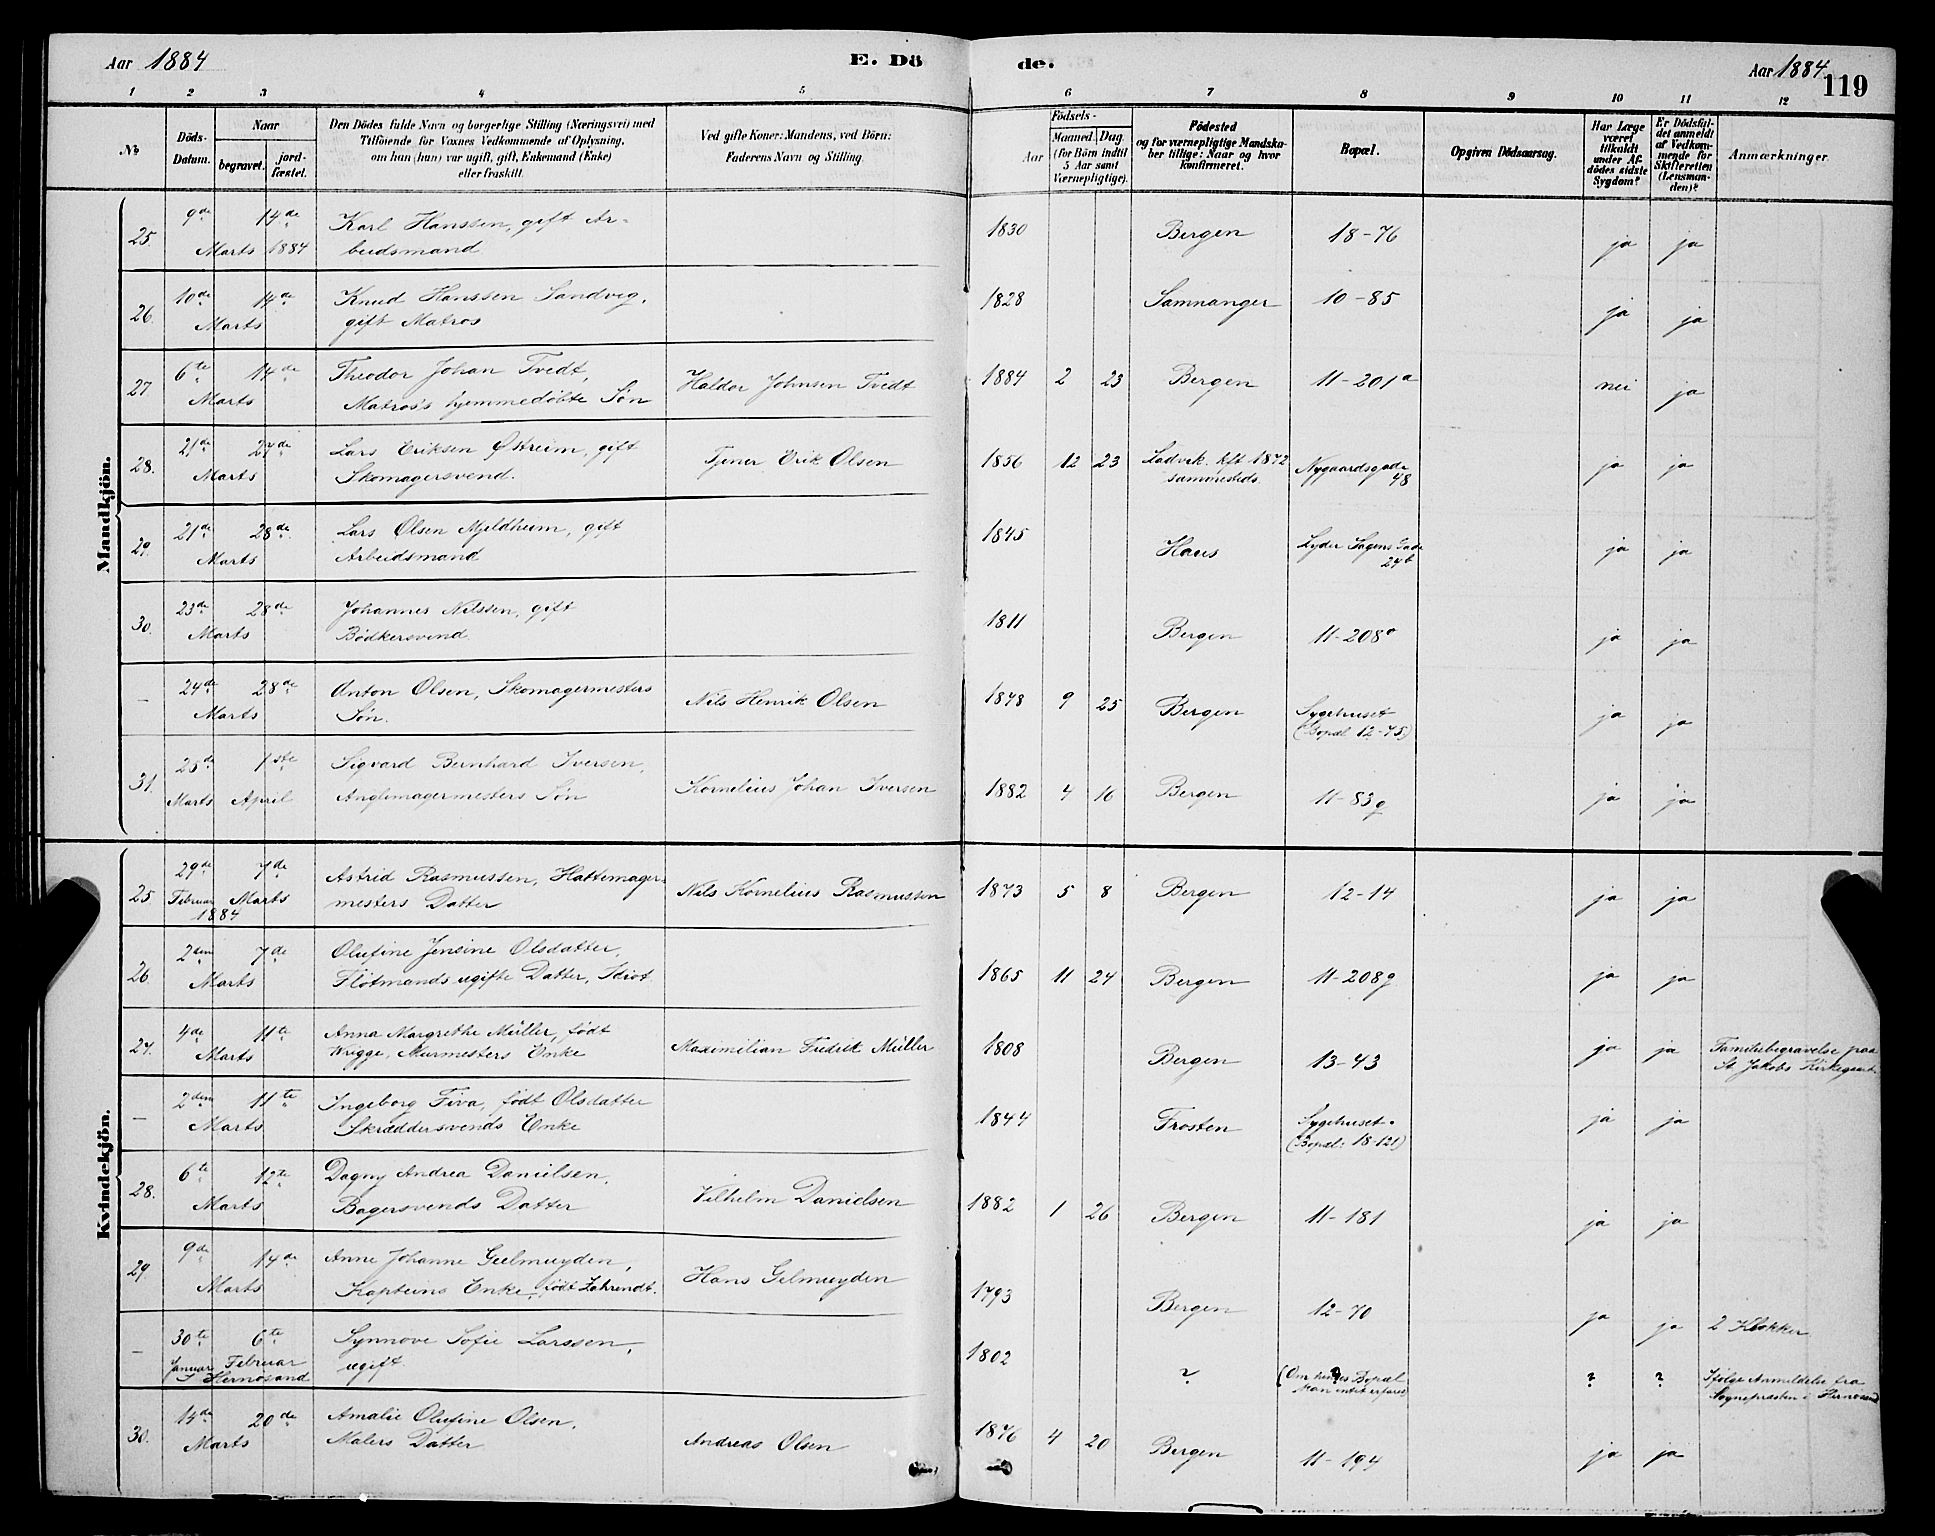 Aar 1884 E. Dö de. Aar 1884. 119
1 2 3 4 5 6 7 8 9 10 11 12
No
Döds-Datum.
Naar
begravet.
jordfæstet.
Den Dödes fulde Navn og borgerlige Stilling (Næringsvei) med
Tilföiende for Voxnes Vedkommende af Oplysning,
om han (hun) var ugift, gift, Enkemand (Enke)
eller fraskilt.
Ved gifte Koner: Mandens, ved Börn:
Faderens Navn og Stilling.
Födsels-
Aar Maaned. Dag.
(for Börn indtil
5 Aar samt
Værnepligtige).
Födested
og for værnepligtige Mandska-
ber tillige: Naar og hvor
konfirmeret.
Bopæl.
Opgiven Dödsaarsag.
Har Læge
været
tilkaldt
under Af-
dödes sidste
Sygdom?
Er Dödsfal-
det anmeldt
af Vedkom-
mende for
Skifteretten
(Lensman-
den)?
Anmærkninger.
Mandkjön.
25. 9de 14de Karl Hanssen, gift Ar- 1830 Bergen 18-76 ja ja
Marts 1884 beidsmand
26. 10de 14de Knud Hanssen Sandvig, 1828 Samnanger 10-85 ja ja
Marts gift Matros
27 6te 14de Theodor Johan Tvedt, Haldor Johnsen Tvedt 1884 2 23 Bergen 11-201a nei ja
Marts Matros's hjemmedøbte Søn
28. 21de 27de Lars Eriksen Østreim, gift Tjener Erik Olsen 1856 12 23 Ladvik. kft 1872 Nygaardsgade ja ja
Marts Skomagersvend. sammesteds. 48
29. 21de 28de Lars Olsen Mjeldheim, gift 1845 Haus Lyder Sagens Gade ja ja
Marts Arbeidsmand 24b
30. 23de 28de Johannes Nilssen, gift 1811 Bergen 11-208o ja ja
Marts Bødkersvend.
– 24de 28de Anton Olsen, Skomagermesters Nils Henrik Olsen 1878 9 25 Bergen Sygehuset ja ja
Marts Søn. (Bopæl 12-75)
31. 25de 1ste Sigvard Bernhard Iversen, Kornelius Johan Iversen 1882 4 16 Bergen 11-83g ja ja
Marts April Anglemagermesters Søn
Kvindekjön.
25 29de 7de Astrid Rasmussen, Hattemager- Nils Kornelius Rasmussen 1873 5 8 Bergen 12-14 ja ja
Februar Marts mesters Datter
1884
26 2den 7de Olufine Jensine Olsdatter, 1865 11 24 Bergen 11-208g ja ja
Marts Fløtmands ugifte Datter, Idiot.
27. 4de 11te Anna Margrethe Müller, født Maximilian Fredrik Müller 1808 Bergen 13-43 ja ja Familiebegravelse paa
Marts Wrigge, Murmesters Enke St. Jakobs Kirkegaard.
– 2den 11te Ingeborg Fiva, født Olsdatter 1844 Frosten Sygehuset. ja ja
Marts Skræddersvends Enke (Bopæl: 18-121)
28. 6te 12te Dagny Andrea Danielsen, Vilhelm Danielsen 1882 1 26 Bergen 11-181 ja ja
Marts Bagersvends Datter
29 9de 14de Anne Johanne Gelmuyden, Hans Gelmuyden 1793 Bergen 12-70 ja ja 2 Klokker
Marts Kapteins Enke, født Fahrendt.
– 30te 6te Synnøve Sofie Larssen, 1802 ? (Om hendes Bopæl ? ? Ifølge Anmeldelse fra
Januar Februar ugift. Man intet erfaret) Sognepræsten i Hernøsand
I Hernøsand
30. 14de 20de Amalie Olufine Olsen, Andreas Olsen 1876 4 20 Bergen 11-194 ja ja
Marts Malers Datter